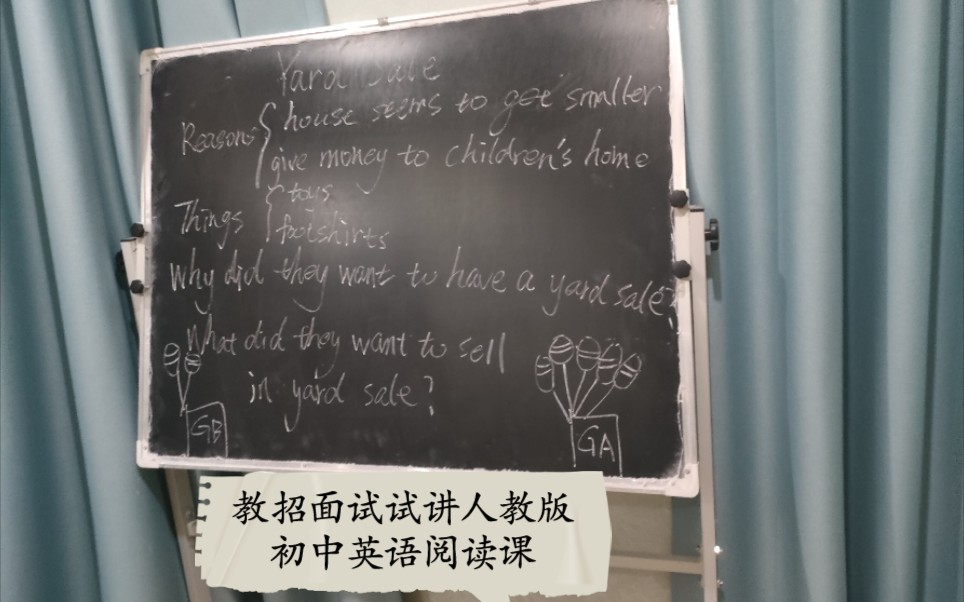 Yard Sale
Reasons { house seems to get smaller
give money to children's home
Things { toys
footshirts
Why did they want to have a yard sale?
What did they want to sell
in yard sale?
GB
GA
教招面试试讲人教版
初中英语阅读课